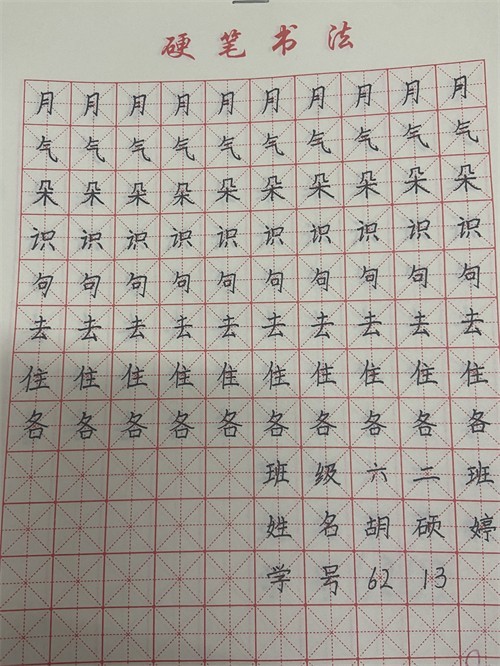 硬笔书法
月月月月月月月月月月
气气气气气气气气气气
朵朵朵朵朵朵朵朵朵朵
识识识识识识识识识识
句句句句句句句句句句
去去去去去去去去去去
住住住住住住住住住住
各各各各各各各各各各
班级六二班
姓名胡硕婷
学号6213